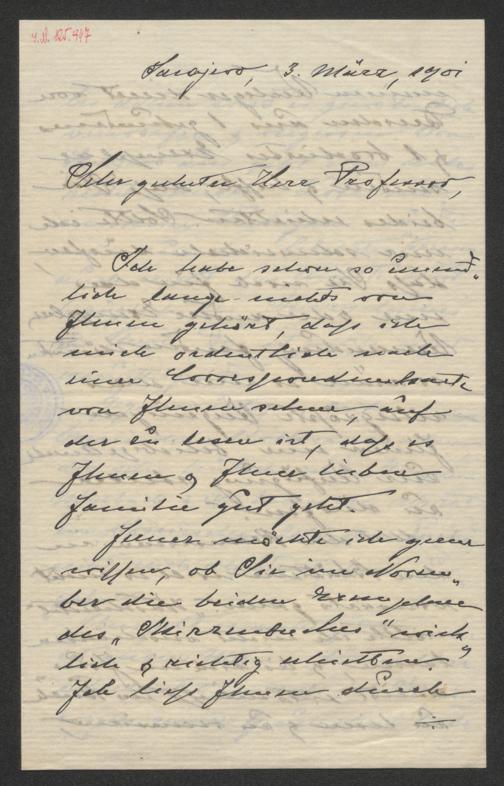 I.N. 125.947
Sarajevo, 3. März, 1901
Sehr geehrter Herr Professor,
Ich habe schon so unend-
lich lange nichts von
Ihnen gehört, daß ich
mich ordentlich nach
einer Correspondenzkarte
von Ihnen sehne, auf
der zu lesen ist, daß es
Ihnen & Ihrer lieben
Familie gut geht.
Ferner möchte ich gerne
wissen, ob Sie im Novem-
ber die beiden Exemplare
des „Skizzenbuches" wirk-
lich & richtig erhielten
Ich ließ Ihnen durch